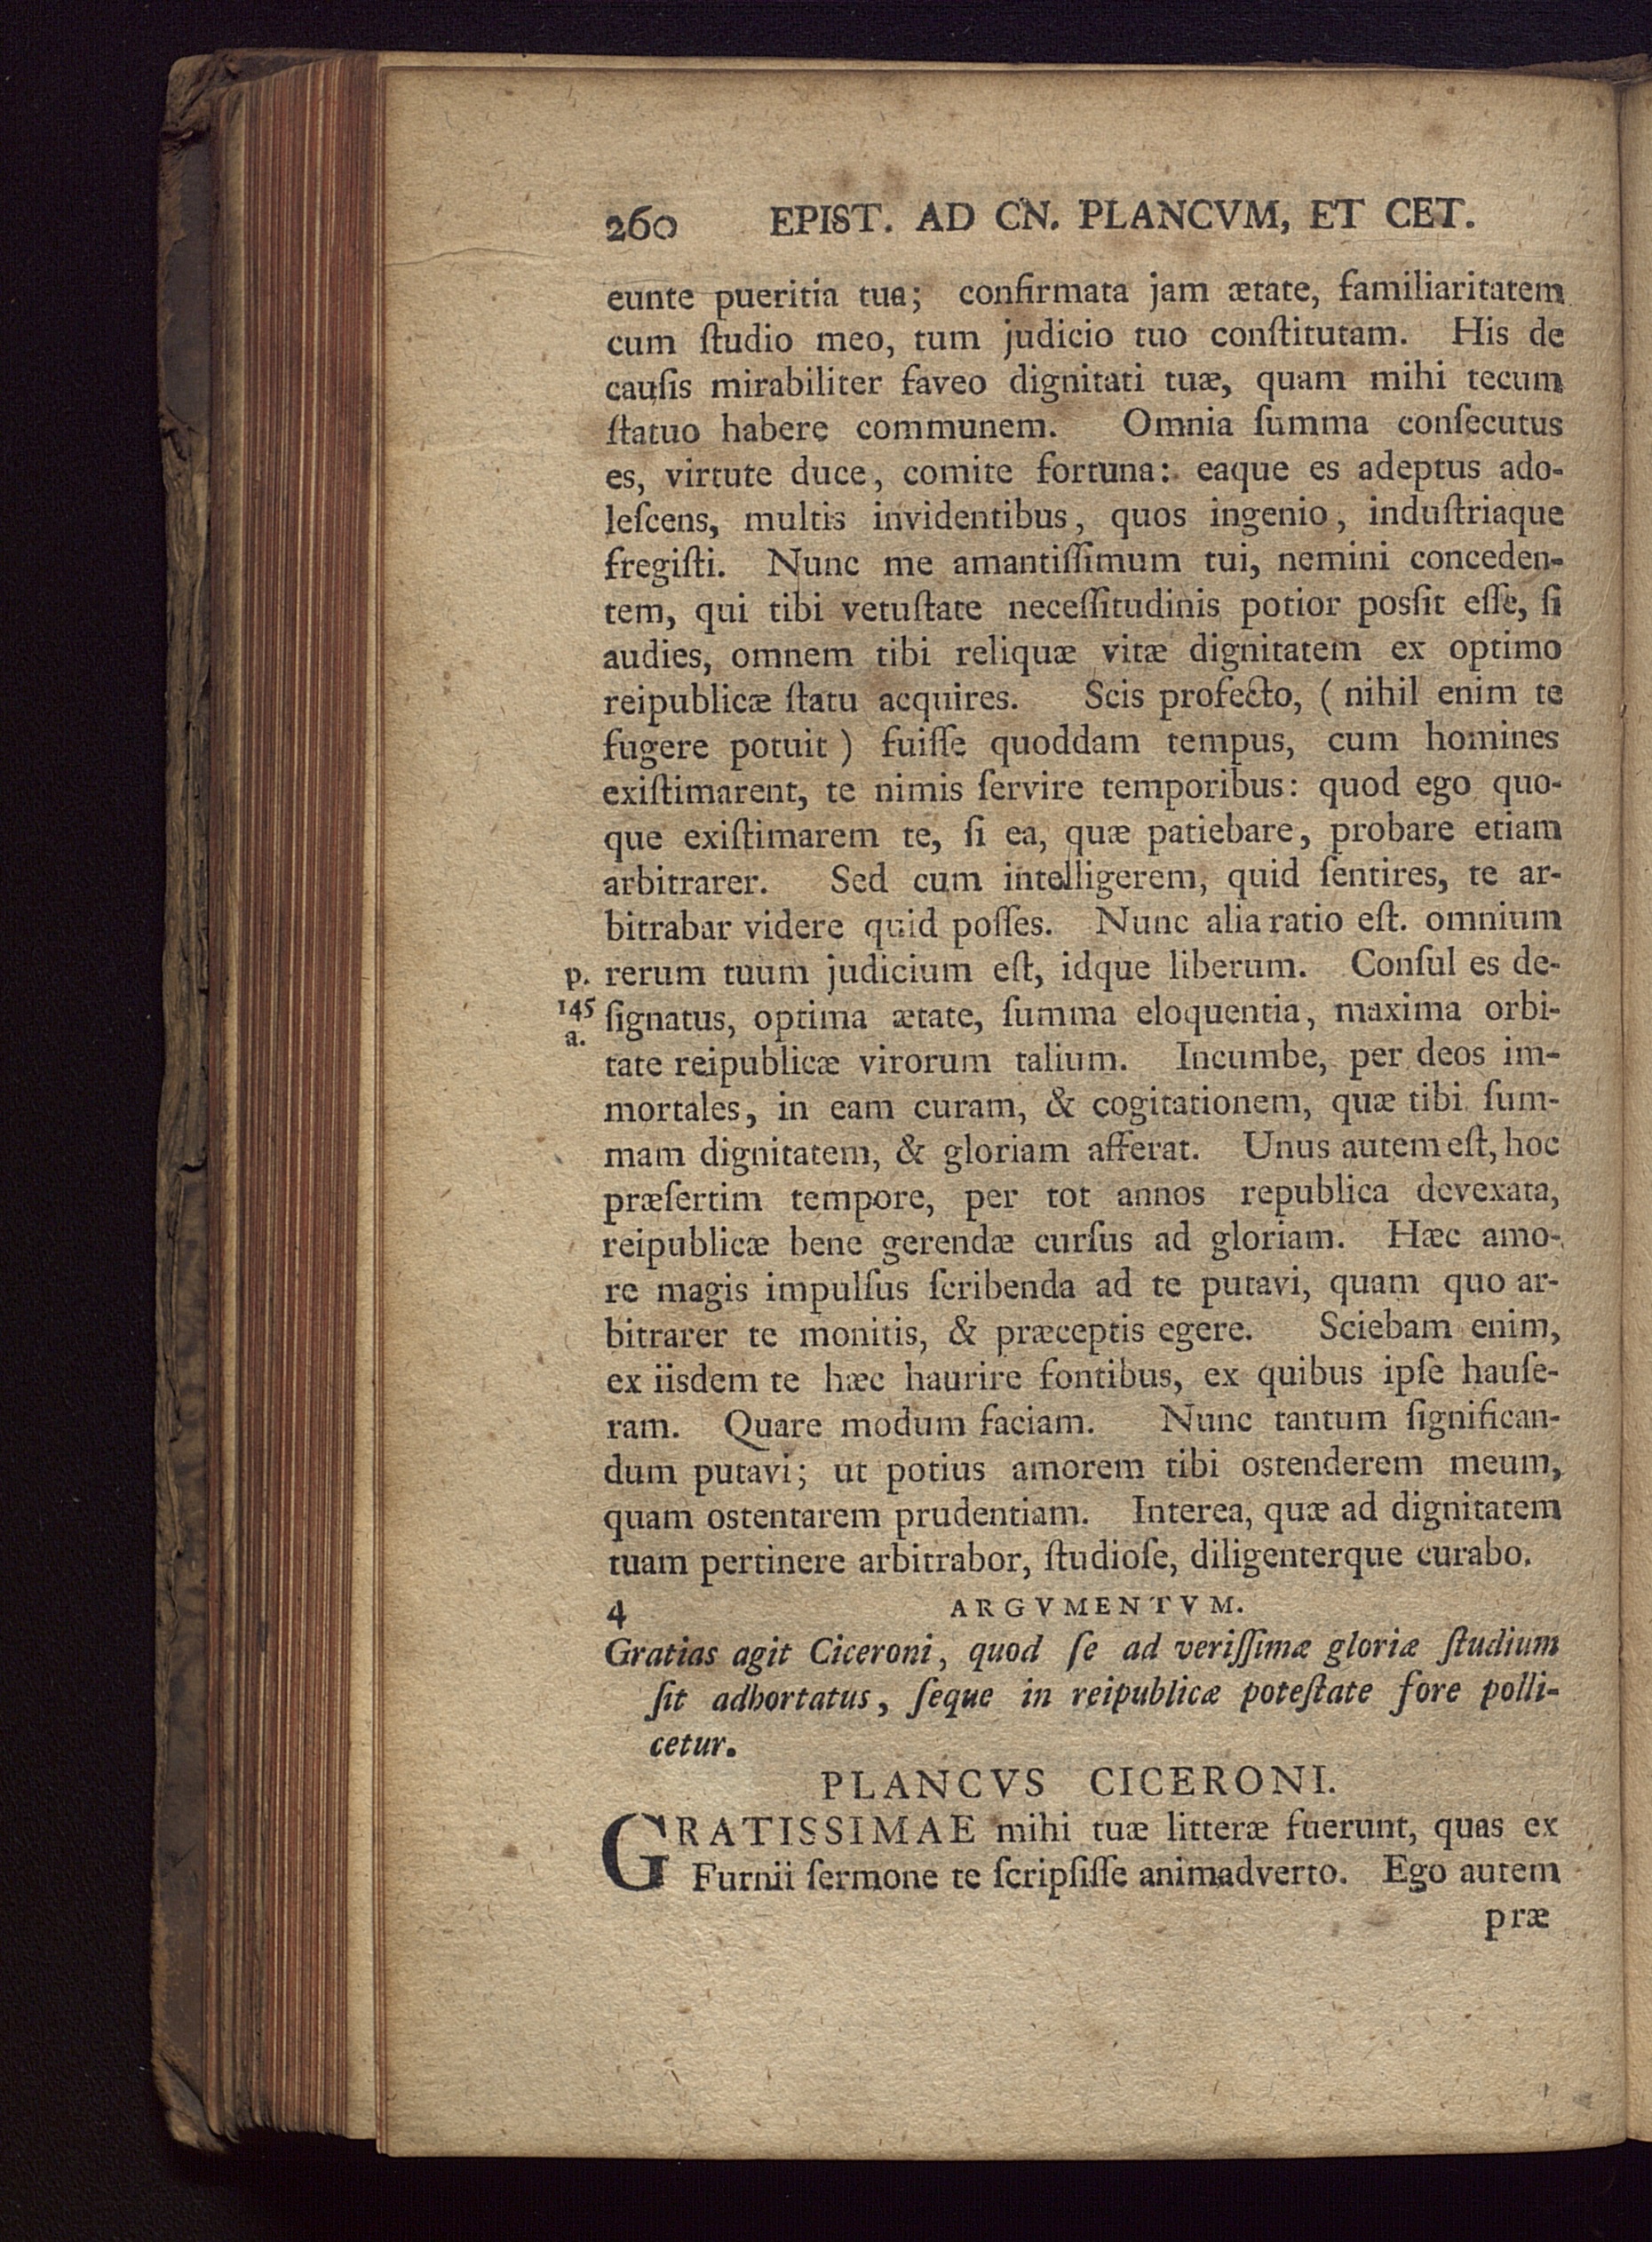 260 EPIST. AD CN. PLANCVM, ET CET.
eunte pueritia tua; confirmata jam ætate, familiaritatem
cum ſtudio meo, tum judicio tuo conſtitutam. His de
cauſis mirabiliter faveo dignitati tuæ, quam mihi tecum
ſtatuo habere communem. Omnia ſumma conſecutus
es, virtute duce, comite fortuna: eaque es adeptus ado-
leſcens, multis invidentibus, quos ingenio, induſtriaque
fregiſti. Nunc me amantiſſimum tui, nemini conceden-
tem, qui tibi vetuſtate neceſſitudinis potior posſit eſſe, ſi
audies, omnem tibi reliquæ vitæ dignitatem ex optimo
reipublicæ ſtatu acquires. Scis profecto, ( nihil enim te
fugere potuit ) fuiſſe quoddam tempus, cum homines
exiſtimarent, te nimis ſervire temporibus: quod ego quo-
que exiſtimarem te, ſi ea, quæ patiebare, probare etiam
arbitrarer. Sed cum intelligerem, quid ſentires, te ar-
bitrabar videre quid poſſes. Nunc alia ratio eſt. omnium
p. rerum tuum judicium eſt, idque liberum. Conſul es de-
145 ſignatus, optima ætate, ſumma eloquentia, maxima orbi-
a.
tate reipublicæ virorum talium. Incumbe, per deos im-
mortales, in eam curam, & cogitationem, quæ tibi ſum-
mam dignitatem, & gloriam afferat. Unus autem eſt, hoc
præſertim tempore, per tot annos republica devexata,
reipublicæ bene gerendæ curſus ad gloriam. Hæc amo-
re magis impulſus ſcribenda ad te putavi, quam quo ar-
bitrarer te monitis, & præceptis egere. Sciebam enim,
ex iisdem te hæc haurire fontibus, ex quibus ipſe hauſe-
ram. Quare modum faciam. Nunc tantum ſignifican-
dum putavi; ut potius amorem tibi ostenderem meum,
quam ostentarem prudentiam. Interea, quæ ad dignitatem
tuam pertinere arbitrabor, ſtudioſe, diligenterque curabo.
4 ARGVMENTVM.
Gratias agit Ciceroni, quod ſe ad veriſſimæ gloriæ ſtudium
ſit adhortatus, ſeque in reipublicæ poteſtate fore polli-
cetur.
PLANCVS CICERONI.
GRATISSIMAE mihi tuæ litteræ fuerunt, quas ex
Furnii ſermone te ſcripſiſſe animadverto. Ego autem
præ